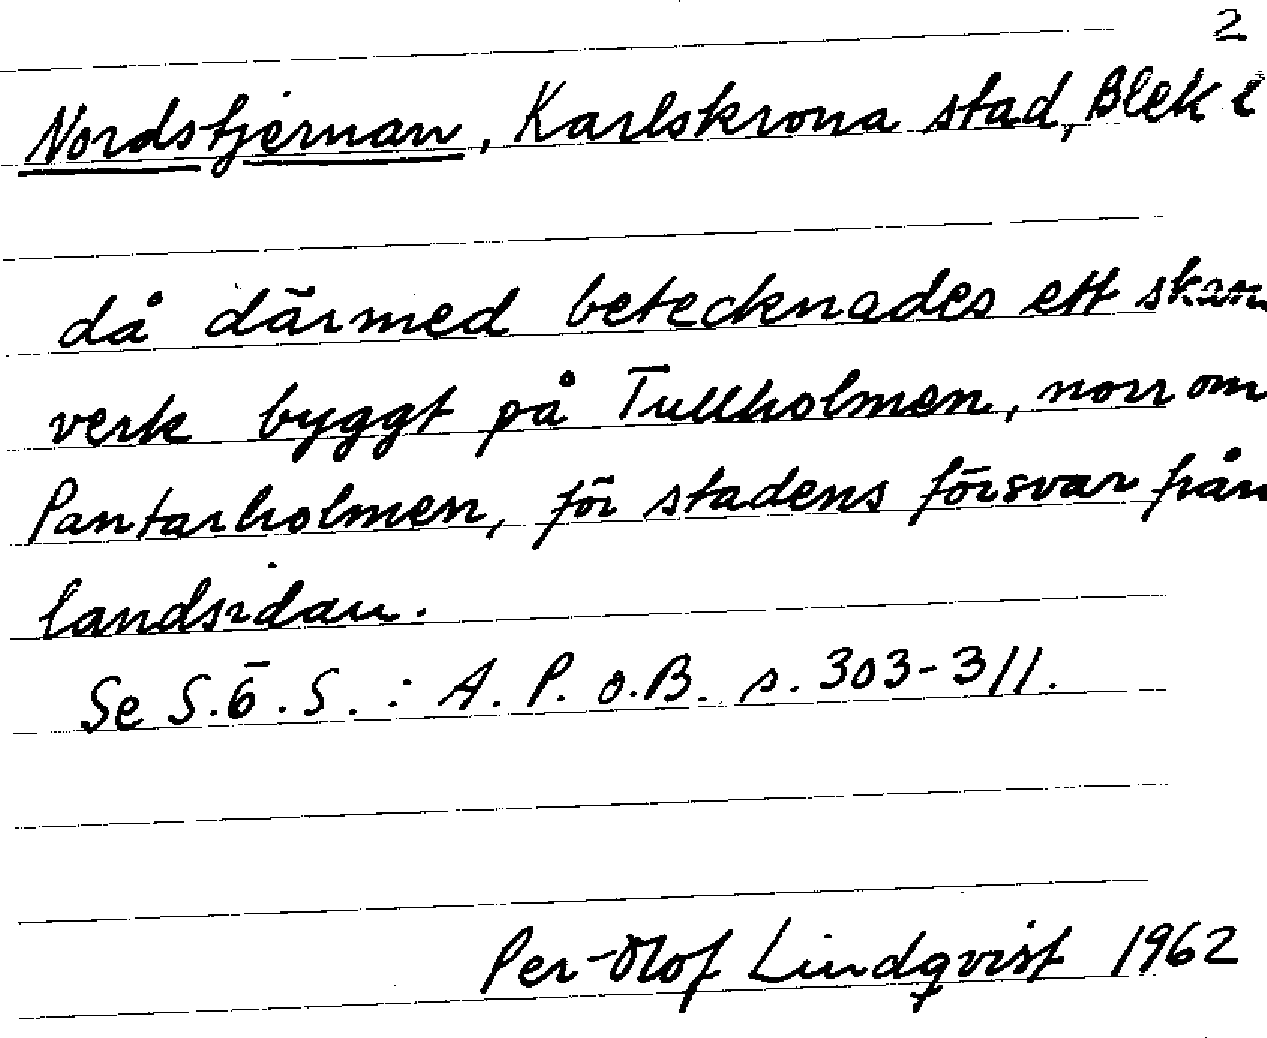 2
Nordstjernan, Karlskrona stad, Blek l
då därmed betecknades ett skan
verk byggt på Tullholmen, norr om
Pantarholmen, för stadens försvar från
landsidan.
Se S.Ö.S.: A.P.o.B. s. 303-311.
Per-Olof Lindqvist 1962